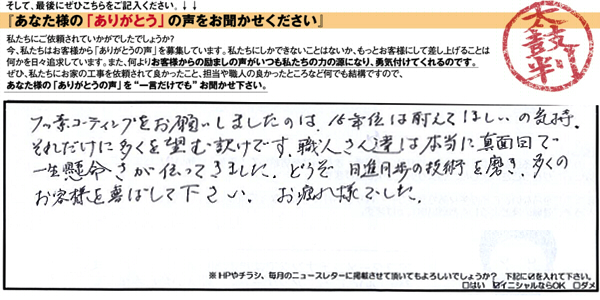 そして、最後にぜひこちらをご記入ください。↓↓
『あなた様の「ありがとう」の声をお聞かせください』
私たちにご依頼されていかがでしたでしょうか?
今、私たちはお客様から「ありがとうの声」を募集しています。私たちにしかできないことはないか、もっとお客様にして差し上げることは
何かを日々追求しています。また、何よりお客様からの励ましの声がいつも私たちの力の源になり、勇気付けてくれるのです。
ぜひ、私たちにお家の工事を依頼されて良かったこと、担当や職人の良かったところなど何でも結構ですので、
あなた様の「ありがとうの声」を“一言だけでも”お聞かせ下さい。
太鼓判
フッ素コーティングをお願いしましたのは、15年位は耐えてほしいの気持。
それだけに多くを望む訳けです。職人さん達は本当に真面目で
一生懸命さが伝ってきました。どうぞ 日進月歩の技術を磨き、多くの
お客様を喜ばして下さい。 お疲れ様でした。
※HPやチラシ、毎月のニュースレターに掲載させて頂いてもよろしいでしょうか? 下記に☑を入れて下さい。
□はい ☑イニシャルならOK □ダメ